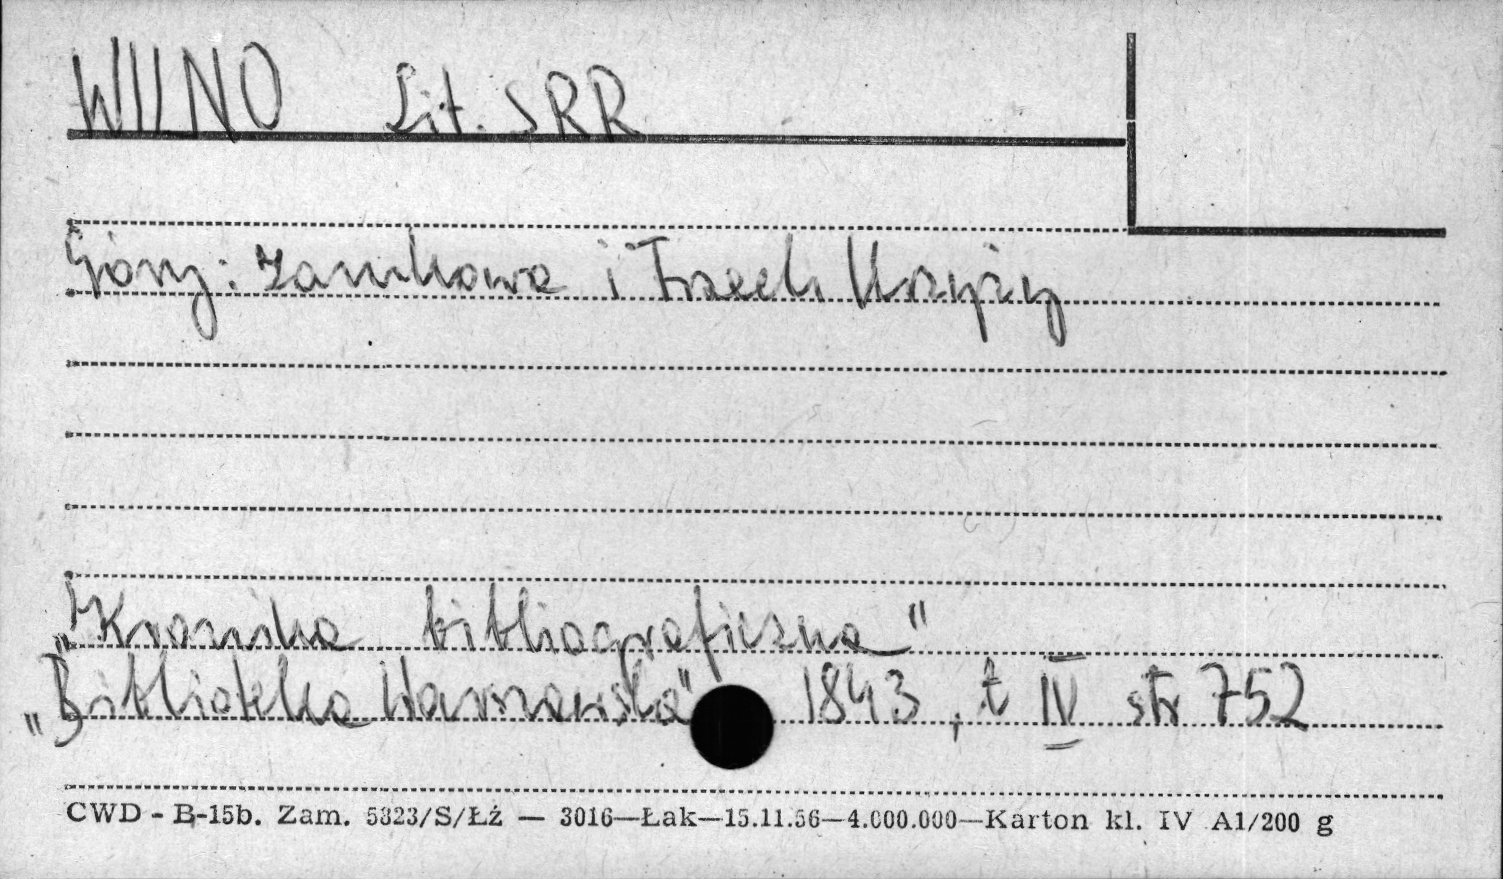 WILNO Lit. SRR
Góry: Zamkowa i Trzech Krzyży
„Kronika bibliograficzna"
„Biblioteka Warszawska" 1843, t IV str 752
CWD - B-15b. Zam. 5323/S/Łź — 3016—Łak—15.11.56—4.000.000—Karton kl. IV A1/200 g